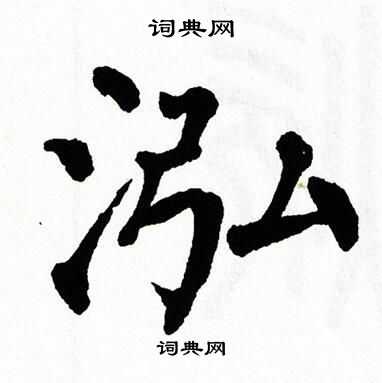 词典网
泓
词典网